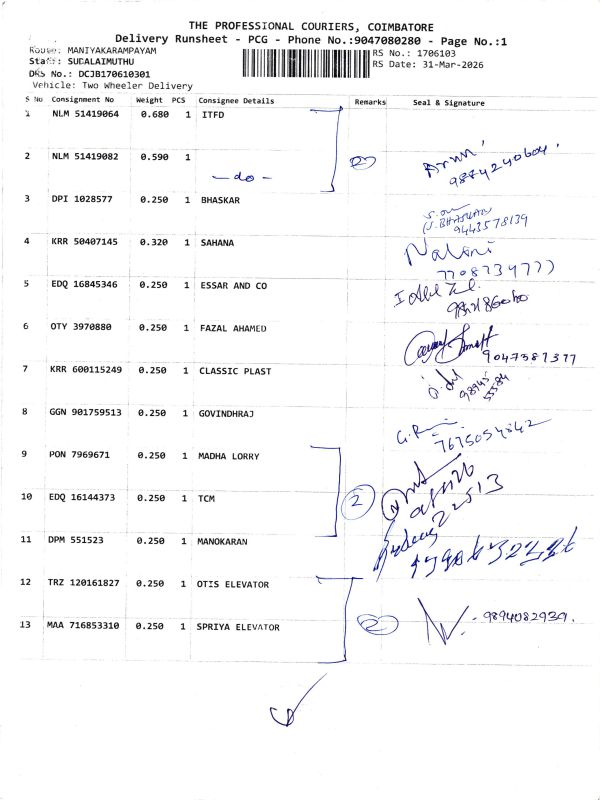 THE PROFESSIONAL COURIERS, COIMBATORE
Delivery Runsheet - PCG - Phone No.:9047080280 - Page No.:1
Route: MANIYAKARAMPAYAM
RS No.: 1706103
Staff: SUDALAIMUTHU
RS Date: 31-Mar-2026
DRS No.: DCJB170610301
Vehicle: Two Wheeler Delivery
S No Consignment No Weight PCS Consignee Details Remarks Seal & Signature
1 NLM 51419064 0.680 1 ITFD
2 NLM 51419082 0.590 1 2 Arun
-do- 9874240604
3 DPI 1028577 0.250 1 BHASKAR
V.BHASKAR
9443578139
4 KRR 50407145 0.320 1 SAHANA Nalini
7708734777
5 EDQ 16845346 0.250 1 ESSAR AND CO
6 OTY 3970880 0.250 1 FAZAL AHAMED
9047387377
7 KRR 600115249 0.250 1 CLASSIC PLAST
98945
55584
8 GGN 901759513 0.250 1 GOVINDHRAJ
7675054842
9 PON 7969671 0.250 1 MADHA LORRY
10 EDQ 16144373 0.250 1 TCM 2
22513
11 DPM 551523 0.250 1 MANOKARAN
12 TRZ 120161827 0.250 1 OTIS ELEVATOR
13 MAA 716853310 0.250 1 SPRIYA ELEVATOR 2 9894082939.